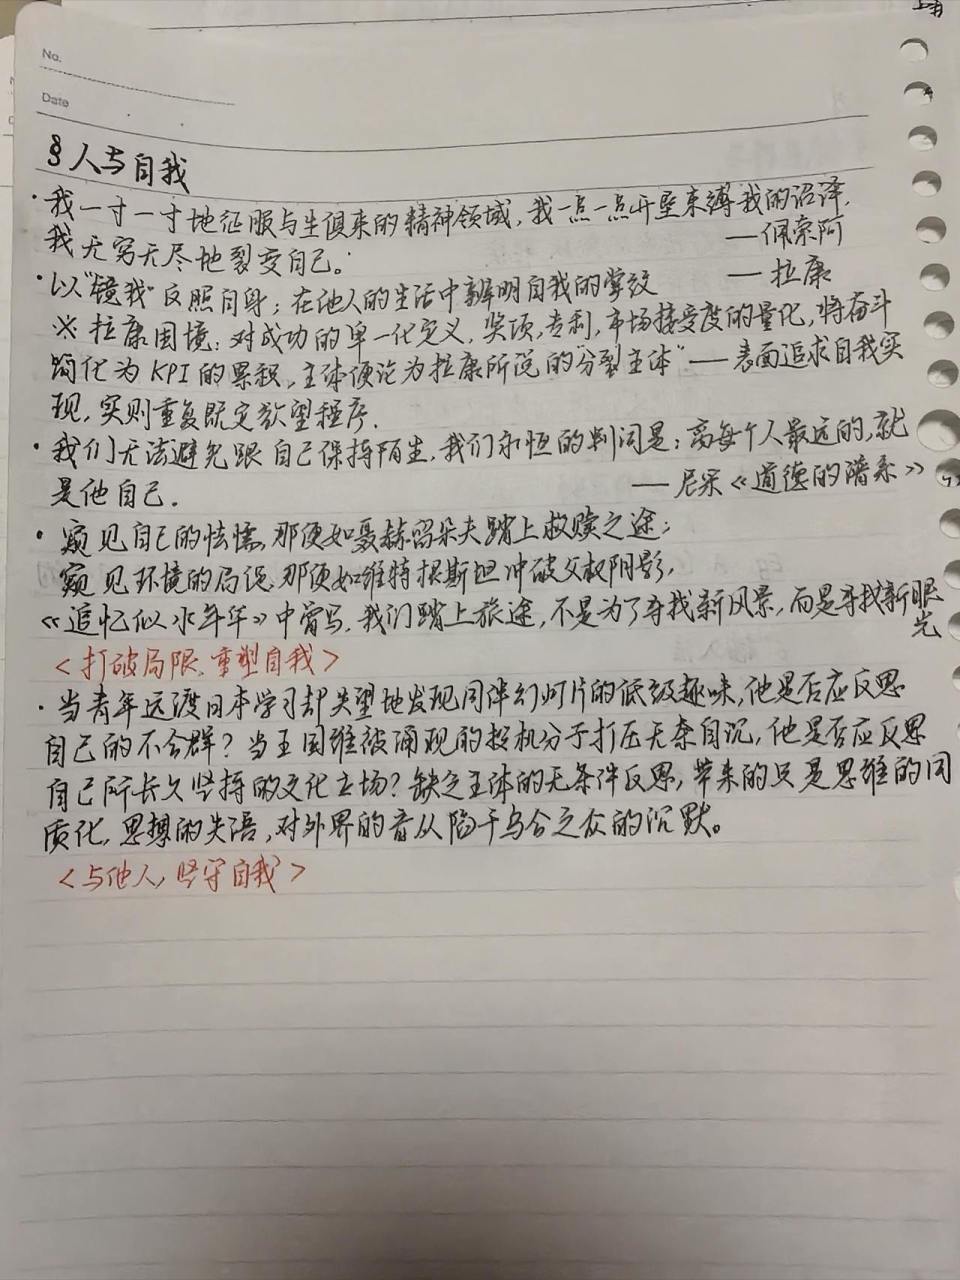 No.
Date
§人与自我
·我一寸一寸地征服与生俱来的精神领域,我一点一点开垦束缚我的沼泽,
我无穷无尽地裂变自己。 ——佩索阿
·以"镜我"反照自身;在他人的生活中辨明自我的掌纹 ——拉康
※拉康困境:对成功的单一化定义,奖项,专利,市场接受度的量化,将奋斗
简化为KPI的累积,主体便沦为拉康所说的"分裂主体"——表面追求自我实
现,实则重复既定欲望程序.
·我们无法避免跟自己保持陌生,我们永恒的判词是:离每个人最远的,就
是他自己. ——尼采《道德的谱系》
·窥见自己的怯懦,那便如聂赫留朵夫踏上救赎之途;
窥见环境的局促,那便如维特根斯坦冲破父权阴影,
《追忆似水年华》中曾写,我们踏上旅途,不是为了寻找新风景,而是寻找新眼
光
<打破局限,重塑自我>
·当青年远渡日本学习却失望地发现同伴幻灯片的低级趣味,他是否应反思
自己的不合群?当王国维被涌现的投机分子打压无奈自沉,他是否应反思
自己所长久坚持的文化立场?缺乏主体的无条件反思,带来的只是思维的同
质化,思想的失语,对外界的盲从陷于乌合之众的沉默。
<与他人,坚守自我>